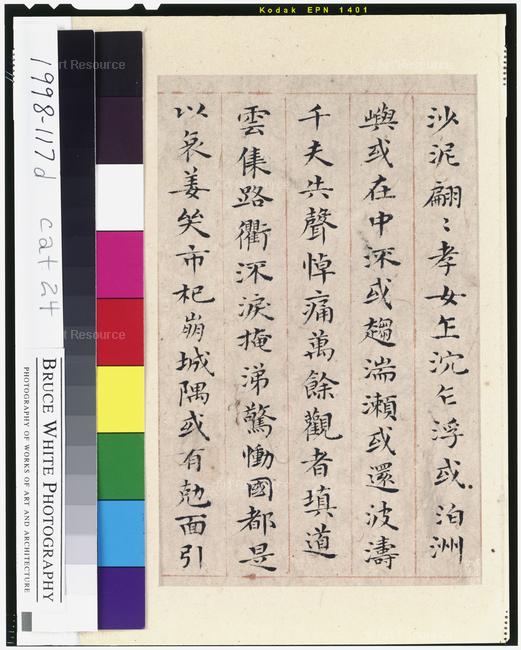 Kodak EPN 1401
沙泥翩〻孝女乍沉乍浮或泊洲
嶼或在中流或趨湍瀨或還波濤
千夫共聲悼痛萬餘觀者填道
雲集路衢流淚掩涕驚慟國都是
以哀姜哭市杞崩城隅或有勊面引
1998-117d cat 24
BRUCE WHITE PHOTOGRAPHY
PHOTOGRAPHY OF WORKS OF ART AND ARCHITECTURE
Art Resource
Art Resource
Art Resource
Art Resource